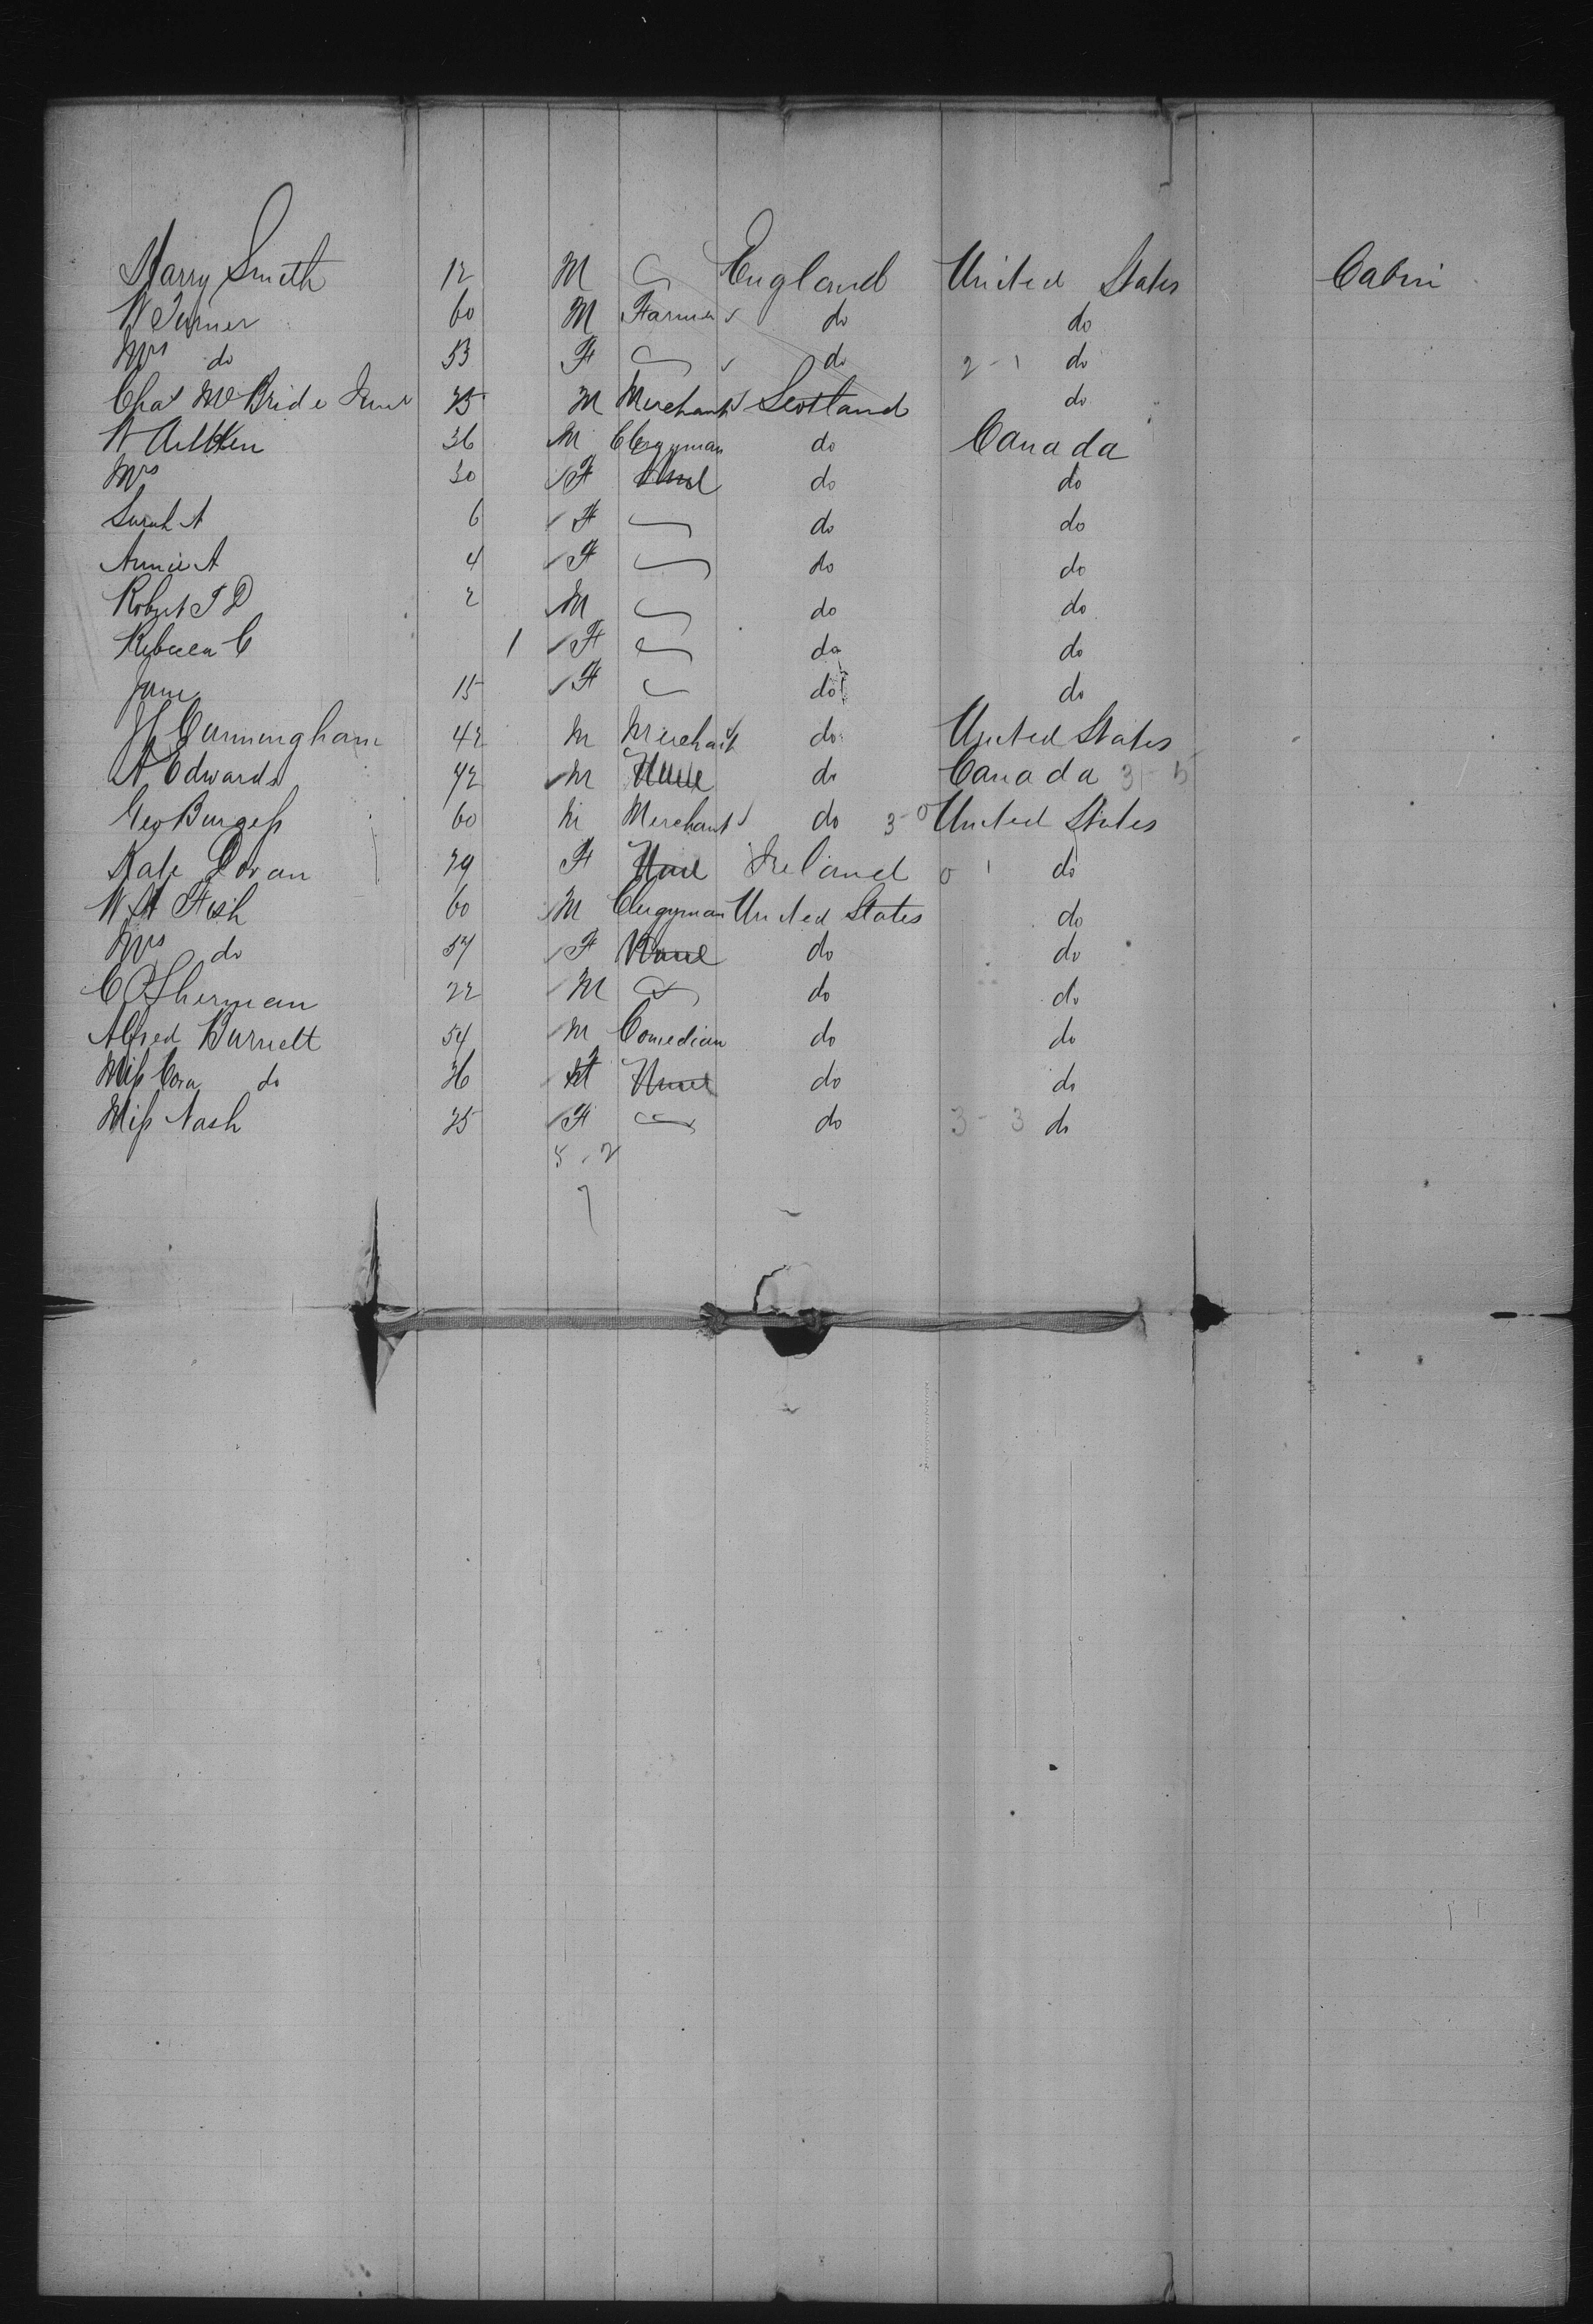 Harry Smith 12 M England United States Cabin
W Turner 60 M Farmer do do
Mrs do 53 F do 2-1 do
Chas McBride Junr 25 M Merchant Scotland do
W Aitken 36 M Clergyman do Canada
Mrs 30 F do do
Sarah A 6 F do do
Annie A 4 F do do
Robert T D 2 M do do
Rebecca C 1 F do do
Jane 15 F do do
Cunningham 42 M Merchant do United States
A Edwards 42 M None do Canada 3-5
Geo Burgess 60 M Merchant do 3-0 United States
Kate Doran 29 F None Ireland 0 1 do
W H Fish 60 M Clergyman United States do
Mrs do 57 F None do do
C P Sherman 22 M do do
Alfred Burnett 54 M Comedian do do
Miss Cora do 26 F None do do
Miss Nash 25 F do 3-3 do
5-2
7